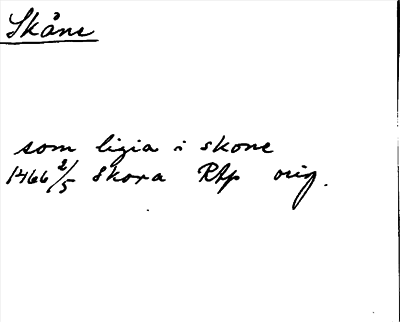 Skåne
som ligia i skone
1466 2/5 Skara RAp orig.